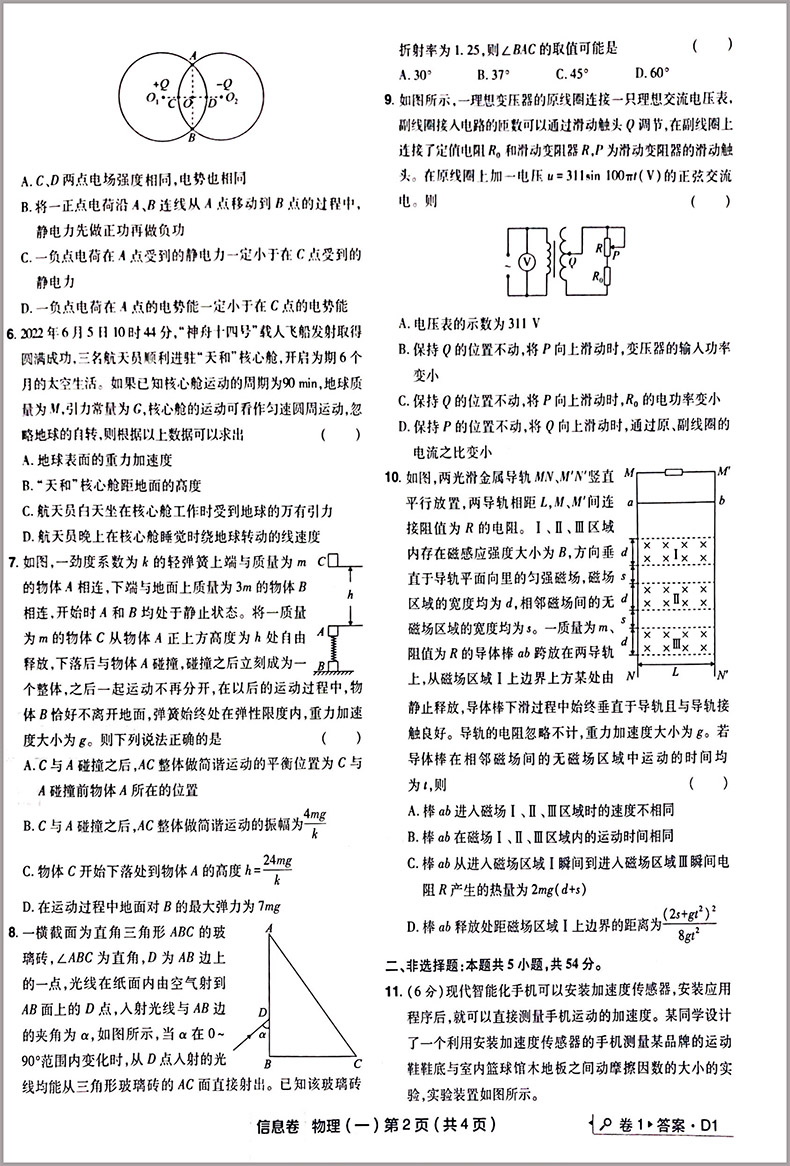 A
+Q
-Q
O₁
C
O
D
O₂
B
A. C、D 两点电场强度相同,电势也相同
B. 将一正点电荷沿 A、B 连线从 A 点移动到 B 点的过程中,
静电力先做正功再做负功
C. 一负点电荷在 A 点受到的静电力一定小于在 C 点受到的
静电力
D. 一负点电荷在 A 点的电势能一定小于在 C 点的电势能
6. 2022 年 6 月 5 日 10 时 44 分,“神舟十四号”载人飞船发射取得
圆满成功,三名航天员顺利进驻“天和”核心舱,开启为期 6 个
月的太空生活。如果已知核心舱运动的周期为90 min,地球质
量为 M,引力常量为 G,核心舱的运动可看作匀速圆周运动,忽
略地球的自转,则根据以上数据可以求出 ( )
A. 地球表面的重力加速度
B. “天和”核心舱距地面的高度
C. 航天员白天坐在核心舱工作时受到地球的万有引力
D. 航天员晚上在核心舱睡觉时绕地球转动的线速度
7. 如图,一劲度系数为 k 的轻弹簧上端与质量为 m
的物体 A 相连,下端与地面上质量为 3m 的物体 B
相连,开始时 A 和 B 均处于静止状态。将一质量
为 m 的物体 C 从物体 A 正上方高度为 h 处自由
释放,下落后与物体 A 碰撞,碰撞之后立刻成为一
个整体,之后一起运动不再分开,在以后的运动过程中,物
体 B 恰好不离开地面,弹簧始终处在弹性限度内,重力加速
度大小为 g。则下列说法正确的是 ( )
C
h
A
B
A. C 与 A 碰撞之后,AC 整体做简谐运动的平衡位置为 C 与
A 碰撞前物体 A 所在的位置
B. C 与 A 碰撞之后,AC 整体做简谐运动的振幅为4mg/k
C. 物体 C 开始下落处到物体 A 的高度 h=24mg/k
D. 在运动过程中地面对 B 的最大弹力为 7mg
8. 一横截面为直角三角形 ABC 的玻
璃砖,∠ABC 为直角,D 为 AB 边上
的一点,光线在纸面内由空气射到
AB 面上的 D 点,入射光线与 AB 边
的夹角为 α,如图所示,当 α 在 0~
90°范围内变化时,从 D 点入射的光
线均能从三角形玻璃砖的 AC 面直接射出。已知该玻璃砖
A
D
α
B
C
折射率为 1.25,则∠BAC 的取值可能是 ( )
A. 30° B. 37° C. 45° D. 60°
9. 如图所示,一理想变压器的原线圈连接一只理想交流电压表,
副线圈接入电路的匝数可以通过滑动触头 Q 调节,在副线圈上
连接了定值电阻 R₀ 和滑动变阻器 R,P 为滑动变阻器的滑动触
头。在原线圈上加一电压 u=311sin 100πt(V)的正弦交流
电。则 ( )
~
V
Q
R
P
R₀
A. 电压表的示数为 311 V
B. 保持 Q 的位置不动,将 P 向上滑动时,变压器的输入功率
变小
C. 保持 Q 的位置不动,将 P 向上滑动时,R₀ 的电功率变小
D. 保持 P 的位置不动,将 Q 向上滑动时,通过原、副线圈的
电流之比变小
10. 如图,两光滑金属导轨 MN、M′N′竖直
平行放置,两导轨相距 L,M、M′间连
接阻值为 R 的电阻。Ⅰ、Ⅱ、Ⅲ区域
内存在磁感应强度大小为 B,方向垂
直于导轨平面向里的匀强磁场,磁场
区域的宽度均为 d,相邻磁场间的无
磁场区域的宽度均为s。一质量为 m、
阻值为 R 的导体棒 ab 跨放在两导轨
上,从磁场区域Ⅰ上边界上方某处由
静止释放,导体棒下滑过程中始终垂直于导轨且与导轨接
触良好。导轨的电阻忽略不计,重力加速度大小为 g。若
导体棒在相邻磁场间的无磁场区域中运动的时间均
为 t,则 ( )
M
M′
a
b
d
Ⅰ
s
d
Ⅱ
s
d
Ⅲ
N
L
N′
A. 棒 ab 进入磁场Ⅰ、Ⅱ、Ⅲ区域时的速度不相同
B. 棒 ab 在磁场Ⅰ、Ⅱ、Ⅲ区域内的运动时间相同
C. 棒 ab 从进入磁场区域Ⅰ瞬间到进入磁场区域Ⅲ瞬间电
阻 R 产生的热量为 2mg(d+s)
D. 棒 ab 释放处距磁场区域Ⅰ上边界的距离为(2s+gt²)²/8gt²
二、非选择题:本题共 5 小题,共 54 分。
11. (6 分)现代智能化手机可以安装加速度传感器,安装应用
程序后,就可以直接测量手机运动的加速度。某同学设计
了一个利用安装加速度传感器的手机测量某品牌的运动
鞋鞋底与室内篮球馆木地板之间动摩擦因数的大小的实
验,实验装置如图所示。
信息卷 物理(一)第2页(共4页)
卷 1▶答案·D1